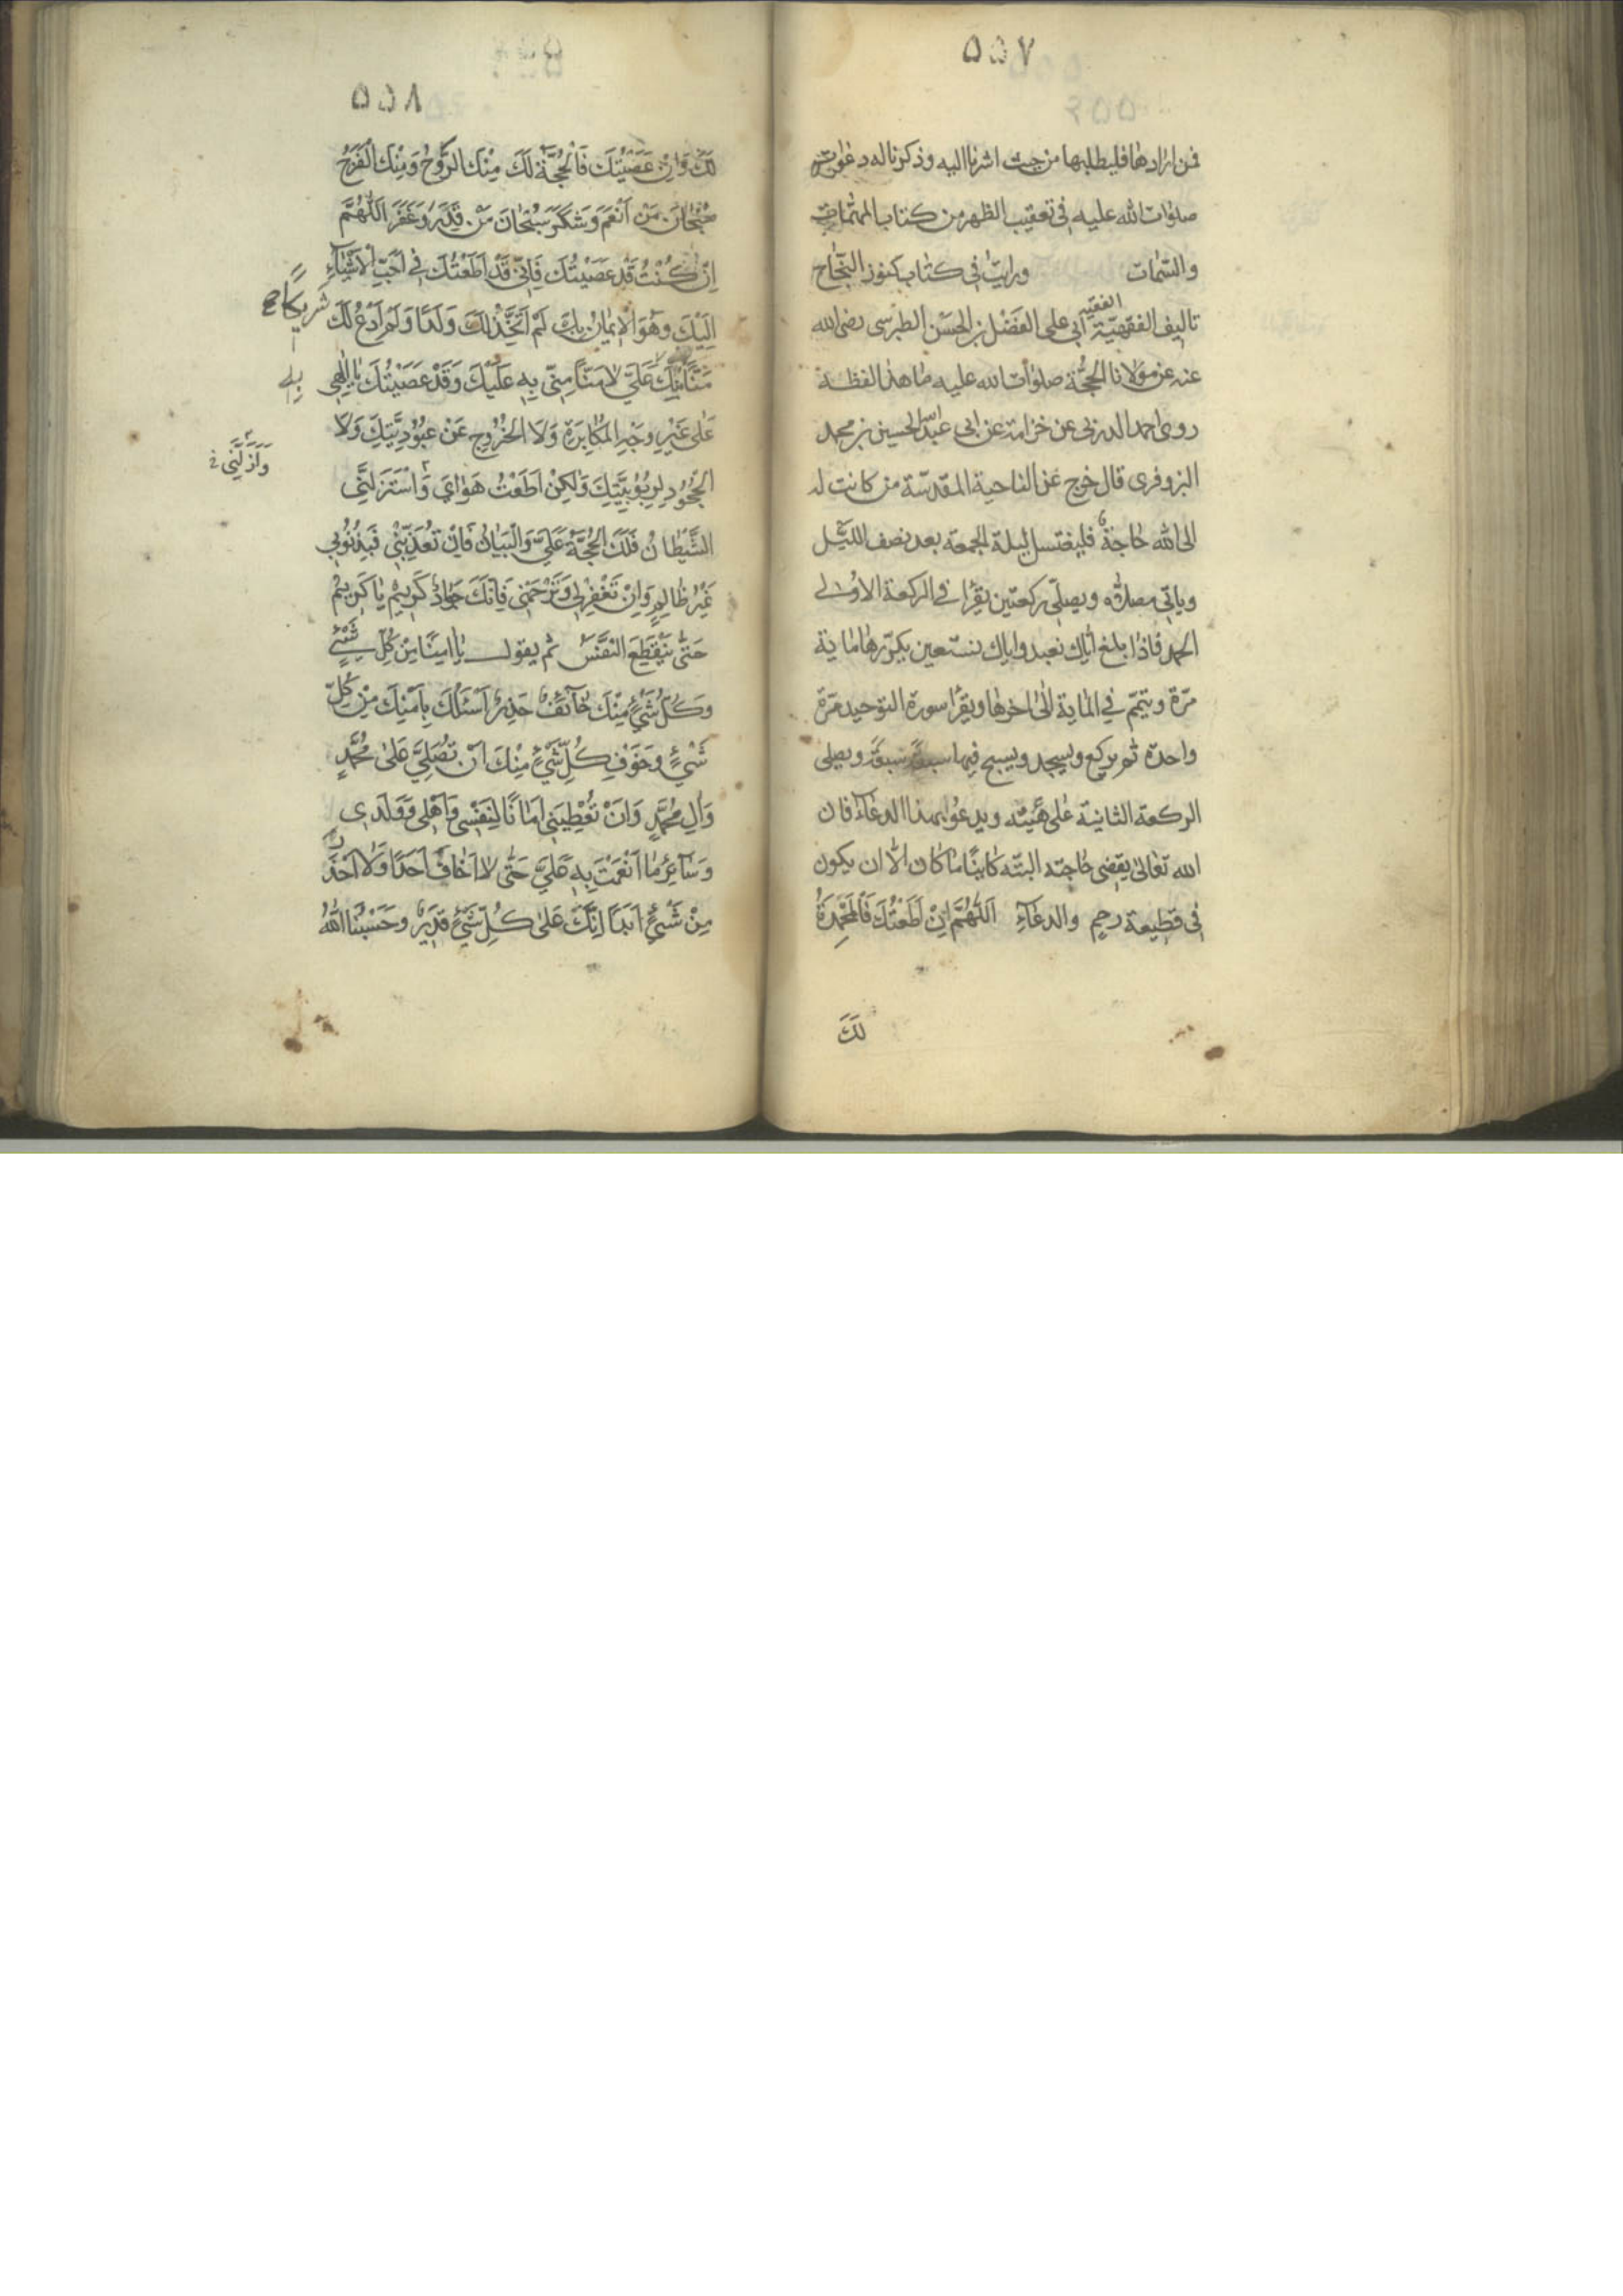 ٥٥٧
فمن ارادها فليطلبها من حيث اشرنا اليه وذكرنا له دعواته
صلوات الله عليه في تعقيب الظهر من كتاب المهمات
والتتمات ورايت في كتاب كنوز النجاح
تاليف الفقهيّة الفقيه ابي على الفَضْل بن الحسَن الطبرسى رضى الله
عنه عن مولانا الحجُّة صلوات الله عليه ما هذا لفظه
روى احمد الدربى عن خزامة عن ابى عبد الله الحسين بن محمد
البزوفرى قال خرج عن الناحية المقدسّة من كانت له
الى الله حاجة فليغتسل ليلة الجمعة بعد نصف الليّل
وياتى مصلاّه ويصلّى ركعتين يقرا في الركعة الاولى
الحمد فاذا بلغ ايّاك نعبد واياك نستعين يكرّرها ماية
مرّة ويتمّم في الماية الى اخرها ويقرا سورة التوحيد مرّة
واحدة ثم يركع ويسجد ويسبح فيها سبعةً سبعةً ويصلى
الركعة الثانية على هيئته ويدعُوا بهذا الدعاء فان
الله تعالى يقضى حاجته البتّه كاينًا ما كان الّا ان يكون
فى قطيعة رحم والدعَاءِ اَللّهُمَّ اِنْ اَطَعْتُكَ فَالْمَحْمِدَةُ
لَكَ
٥٥٨
لَكَ وَاِنْ عَصَيْتُكَ فَاْلحُجَّةُ لَكَ مِنْكَ الرَّوْحُ وَمِنْكَ الْفَرَجُ
سُبْحَانَ مَنْ اَنْعَمَ وَشَكَرَ سُبْحَانَ مَنْ قَدَرَ وَغَفَرَ اَللّهُمَّ
اِنْ كُنْتُ قَدْ عَصَيْتُكَ فَاِنّى قَدْ اَطَعْتُكَ فِى اَحَبِّ الْاَشْيَاءِ
اِلَيْكَ وَهُوَ الْايمَانُ بِكَ لَمْ اَتَّخِذْ لَكَ وَلَدًا وَلَمْ اَدْعُ لَكَ
شَرِيكًا
مَنًّا مِنْكَ عَلَىَّ لا مَنًّا مِنّى بِهِ عَلَيْكَ وَقَدْ عَصَيْتُكَ يَا اِلٰهِى
عَلٰى غَيْرِ وَجْهِ الْمُكَابِرَةِ وَلَا الْخُرُوجِ عَنْ عُبُودِيَّتِكَ وَلَا
الْجُحُودِ لِرِبُوبِيَّتِكَ وَلٰكِنْ اَطَعْتُ هَوٰاىَ وَاسْتَزَلَّنِى
وَاَزَلَّنِى
الشَّيْطَانُ فَلَكَ الْحُجَّةُ عَلَىَّ وَالْبَيَانُ فَاِنْ تُعَذِّبْنِى فَبِذُنُوبِى
غَيْرُ ظَالِمٍ وَاِنْ تَغْفِرْ لِى وَتَرْحَمْنِى فَاِنَّكَ جَوَادٌ كَرِيمٌ يَا كَرِيمُ
حَتّٰى يَنْقَطِعَ النَّفَسُ ثم يقول يَا اٰمِنًا مِنْ كُلِّ شَيْءٍ
وَكُلُّ شَيْءٍ مِنْكَ خَائِفٌ حَذِرٌ اَسْئَلُكَ بِاَمْنِكَ مِنْ كُلِّ
شَيْءٍ وَخَوْفِ كُلِّ شَيْءٍ مِنْكَ اَنْ تُصَلِّىَ عَلٰى مُحَمَّدٍ
وَاٰلِ مُحَمَّدٍ وَاَنْ تُعْطِيَنِى اَمَانًا لِنَفْسِى وَاَهْلِى وَوَلَدِى
وَسَائِرِ مَا اَنْعَمْتَ بِهِ عَلَىَّ حَتّٰى لَا اَخَافَ اَحَدًا وَلَا اَحْذَرَ
مِنْ شَيْءٍ اَبَدًا اِنَّكَ عَلٰى كُلِّ شَيْءٍ قَدِيرٌ وَحَسْبُنَا اللهُ